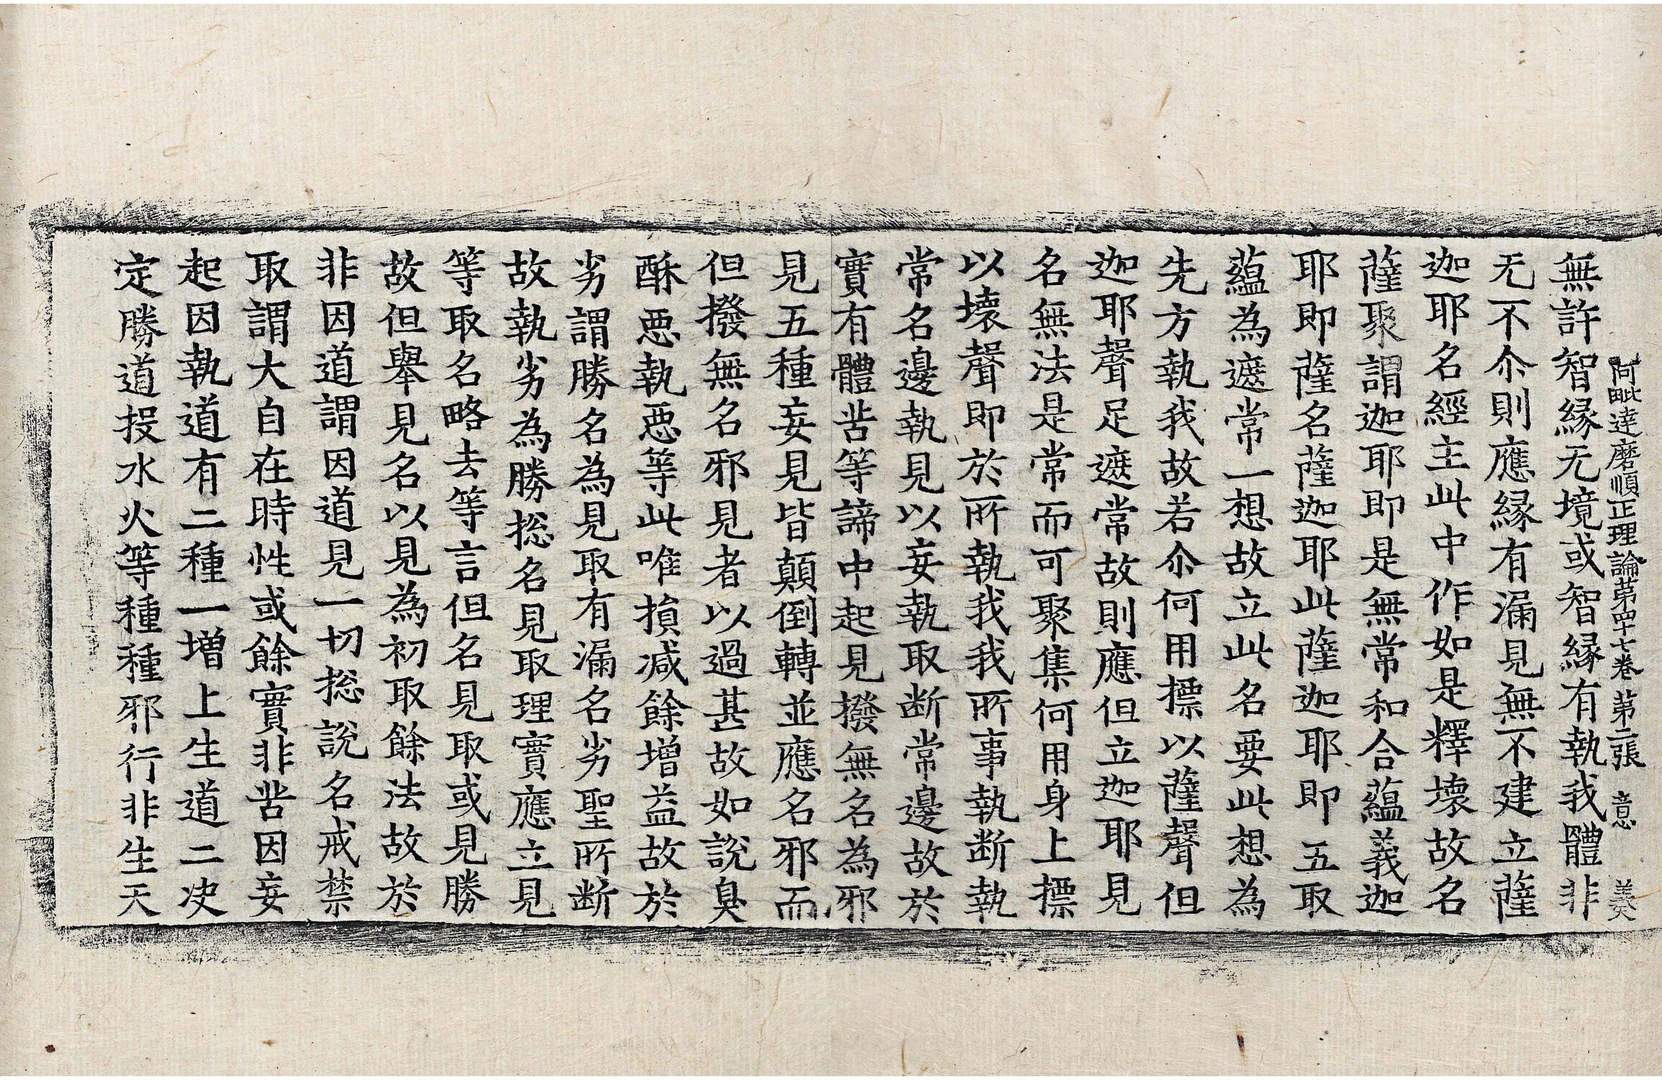 阿毗達磨順正理論第四十七卷 第二張 意
無許智縁无境或智縁有執我體非
无不尒則應縁有漏見無不建立薩
迦耶名經主此中作如是釋壞故名
薩聚謂迦耶即是無常和合蘊義迦
耶即薩名薩迦耶此薩迦耶即五取
蘊為遮常一想故立此名要此想為
先方執我故若尒何用標以薩聲但
迦耶聲足遮常故則應但立迦耶見
名無法是常而可聚集何用身上標
以壞聲即於所執我我所事執断執
常名邊執見以妄執取断常邊故於
實有體苦等諦中起見撥無名為邪
見五種妄見皆顛倒轉並應名邪而
但撥無名邪見者以過甚故如說臭
酥惡執惡等此唯損減餘增益故於
劣謂勝名為見取有漏名劣聖所断
故執劣為勝捴名見取理實應立見
等取名略去等言但名見取或見勝
故但舉見名以見為初取餘法故於
非因道謂因道見一切捴說名戒禁
取謂大自在時性或餘實非苦因妄
起因執道有二種一增上生道二决
定勝道投水火等種種邪行非生天